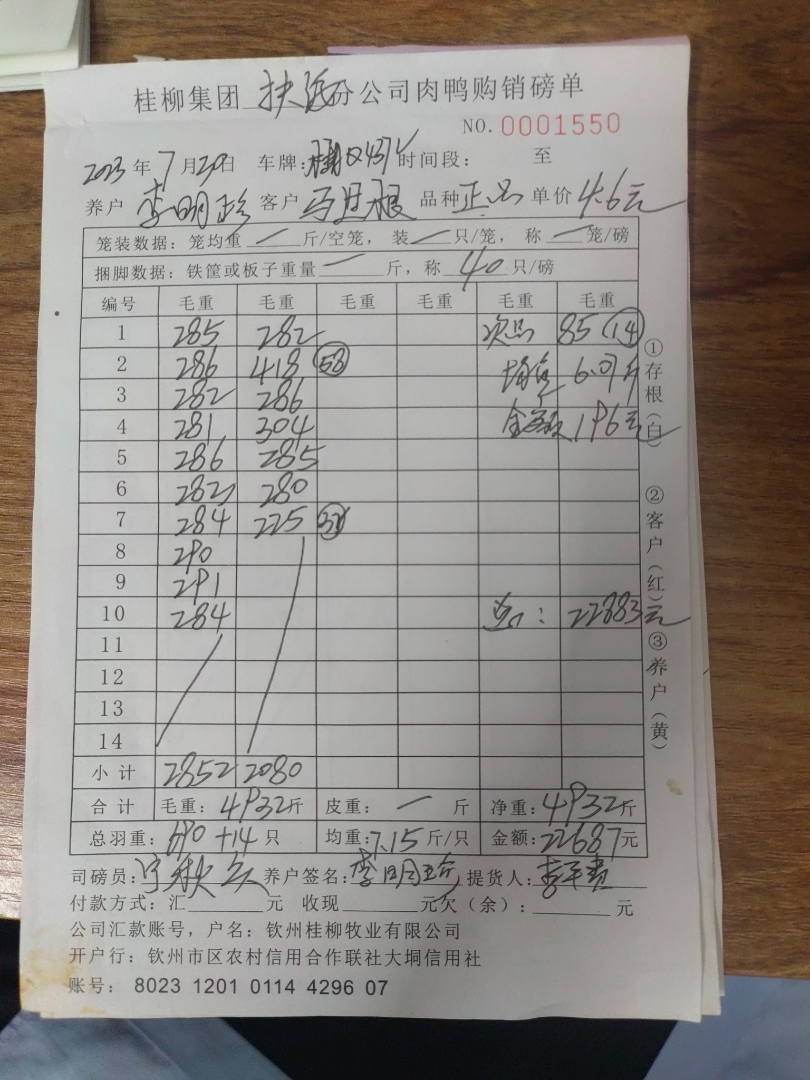 桂柳集团 扶 分公司肉鸭购销磅单
NO. 0001550
2023年7月20日 车牌: 时间段: 至
养户 李明珍 客户 马 根 品种 正品 单价 4.6元
笼装数据: 笼均重 一 斤/空笼, 装 一 只/笼, 称 一 笼/磅
捆脚数据: 铁筐或板子重量 一 斤, 称 40 只/磅
编号 毛重 毛重 毛重 毛重 毛重 毛重
1 285 282 次品 85 (14)
2 286 418 (58) 均重 6.07斤
3 282 286
4 281 304 金额 196元
5 286 285
6 282 280
7 284 225
8 290
9 291
10 284 : 22883元
11
12
13
14
小计 2852 2080
合计 毛重: 4932斤 皮重: 一 斤 净重: 4932斤
总羽重: 690+14 只 均重: 7.15斤/只 金额: 22687元
司磅员: 养户签名: 李明珍 提货人: 李
付款方式: 汇 元 收现 元欠(余): 元
公司汇款账号, 户名: 钦州桂柳牧业有限公司
开户行: 钦州市区农村信用合作联社大垌信用社
账号: 8023 1201 0114 4296 07
①存根(白) ②客户(红) ③养户(黄)